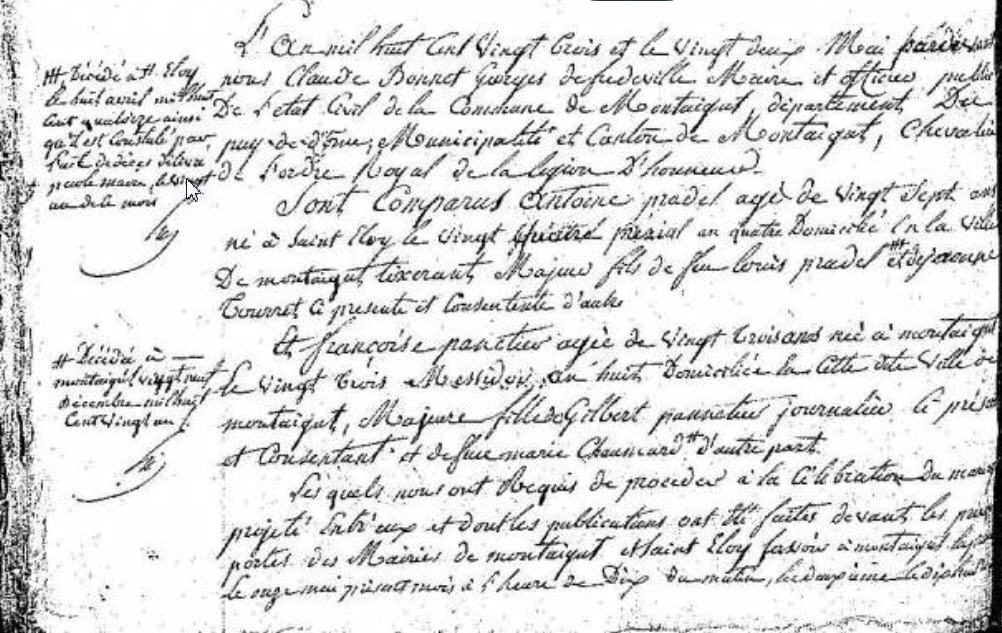 L'an mil huit Cent Vingt trois et le vingt deux Mai pardevant
nous Claude Bonnet Georges defredeville Maire et officier public
De l'etat Civil de la Commune de Montaigut, département Du
puy-de-dôme, Municipalité et Canton de Montaigut, Chevalier
de l'ordre Royal de la legion D'honneur.
Sont Comparus Antoine pradel agé de vingt Sept ans
né à Saint Eloy le vingt prérial an quatre Domicilié En la Ville
De montaigut tixerant, Majeur fils de feu louis pradel # et de jeanne
Tourret Ci presente et Consentente d'autre
Et françoise panetier agée de vingt trois ans née à montaigut
le vingt trois Messidor, an huit Domiciliée la Cette dite Ville de
montaigut, Majeure fille de Gilbert pannetier journalier Ci présent
et Consentant et de feue marie Chaumard # d'autre part.
Les quels nous ont Requis de proceder à la Célébration du mariage
projeté Entr'eux et dont les publications ont été faites devant les
portes des Mairies de montaigut et Saint Eloy savoir à montaigut
le onze mai présent mois à l'heure de Dix du matin, la deuxième le dix huit
# Décédé à St Eloy
le huit avril mil huit
Cent quatorze ainsi
qu'il est Constaté par
l'acte de décès délivré
par le maire, le vingt
un de le mois
# Décédée à
montaigut vingt neuf
Décembre mil huit
Cent vingt un